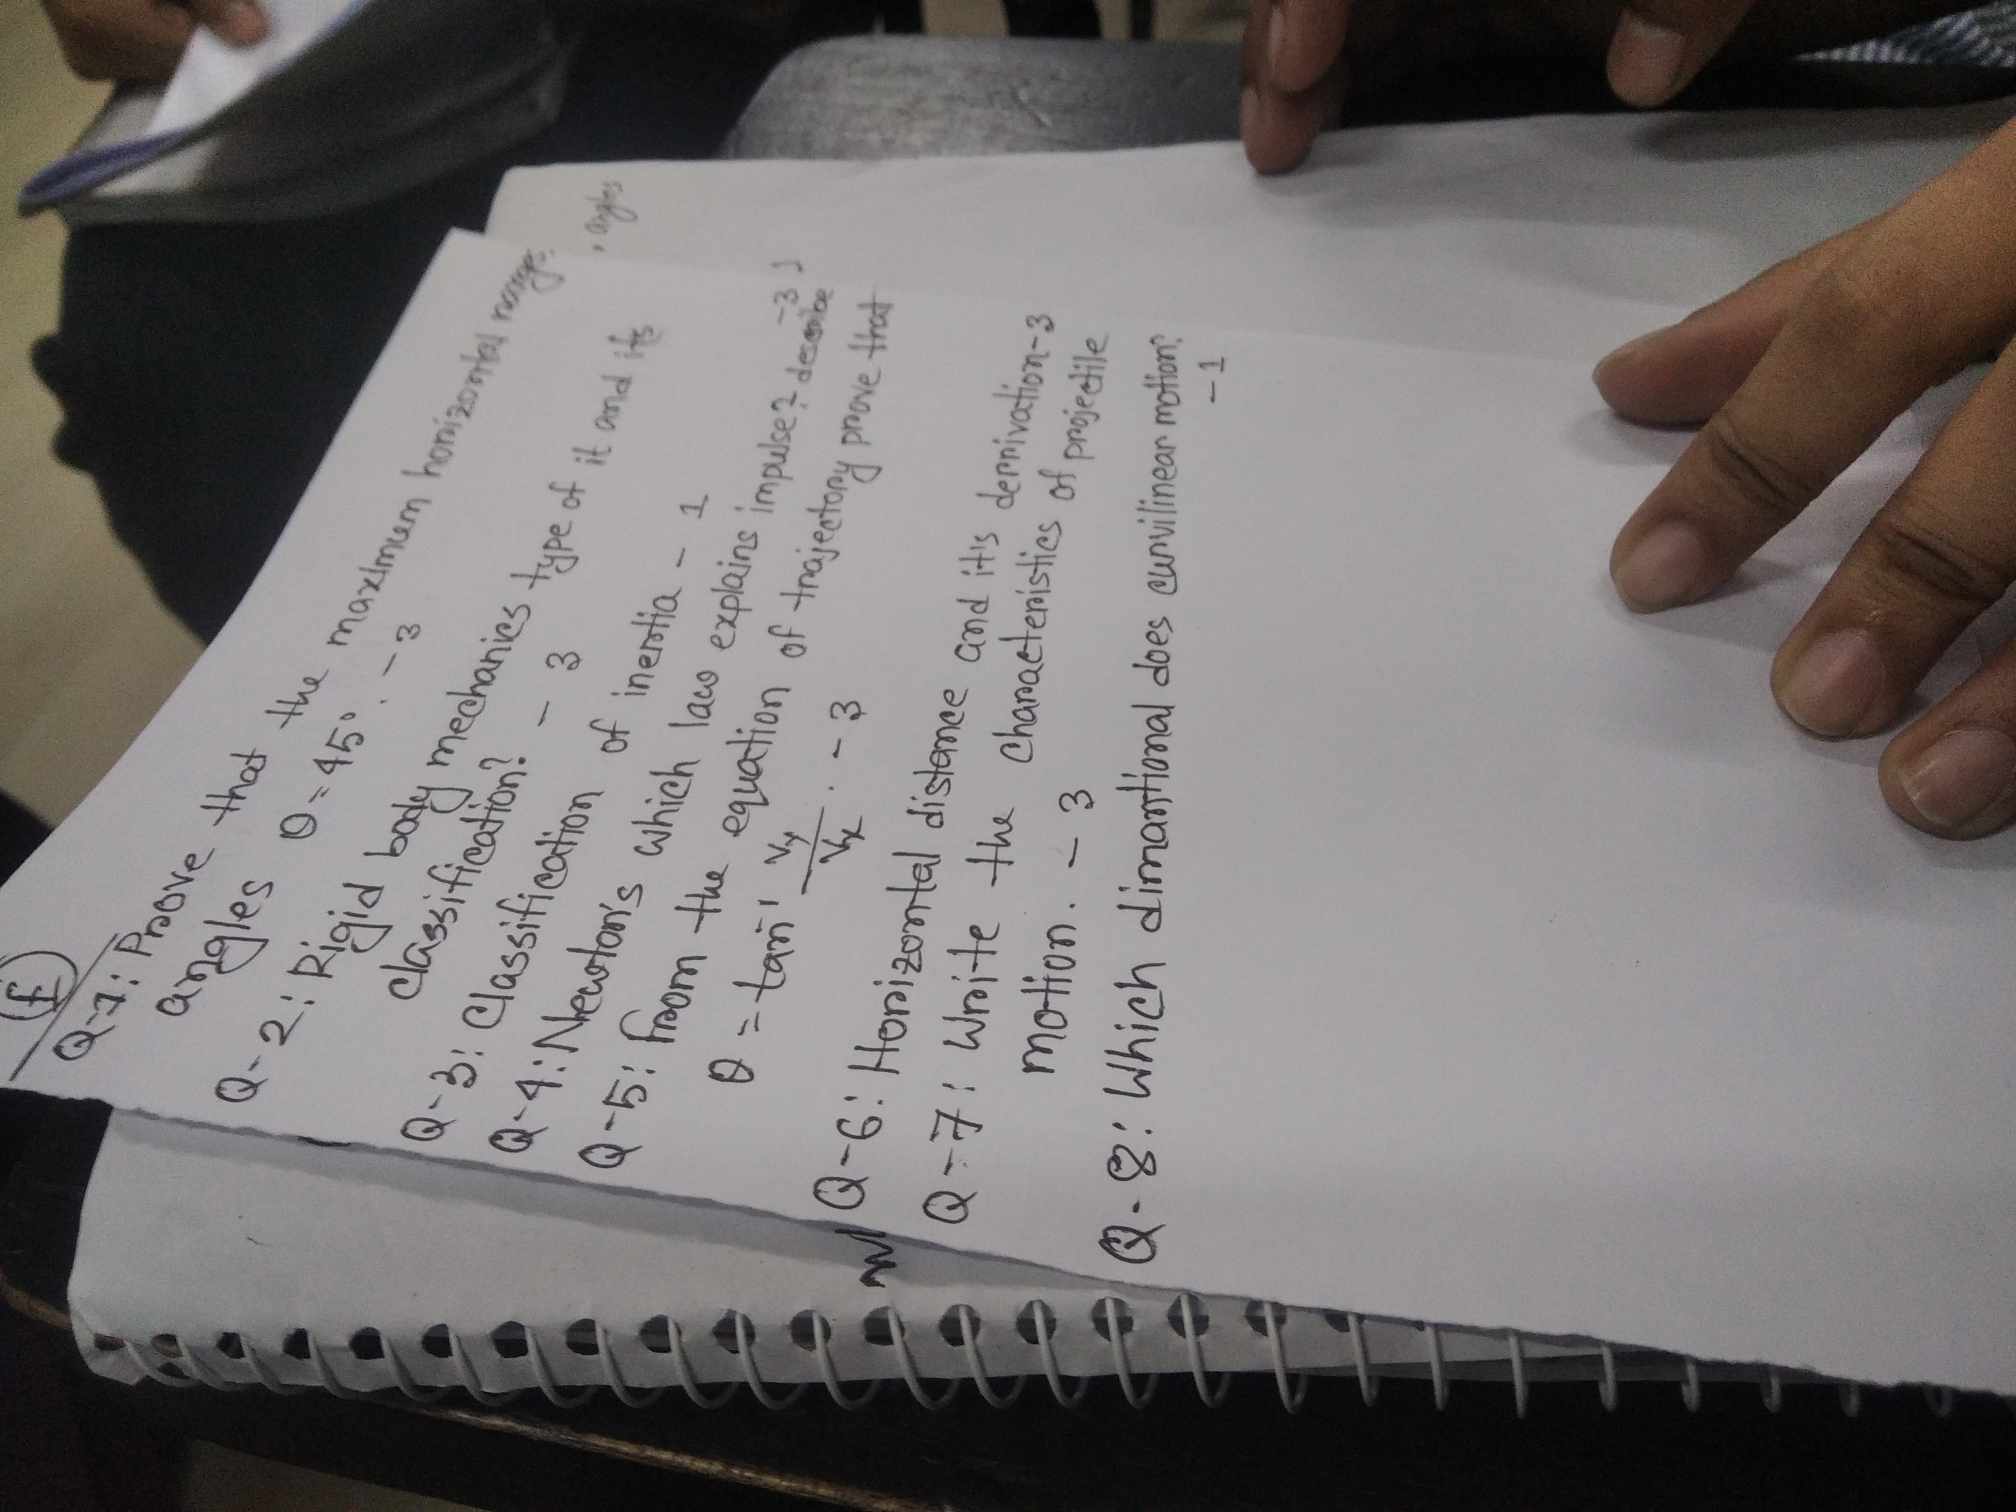 (f)
Q-1: Prove that the maximum horizontal range.
angles θ = 45°. - 3
, angles
Q-2: Rigid body mechanics type of it and its
classification? - 3
Q-3: Classification of inertia - 1
Q-4: Newton's which law explains impulse? describe
-3
Q-5: from the equation of trajectory prove that
θ = tan⁻¹ Vy/Vx . - 3
Q-6: Horizontal distance and it's derivation-3
Q-7: Write the characteristics of projectile
motion. - 3
Q-8: Which dimantional does curvilinear motion?
- 1